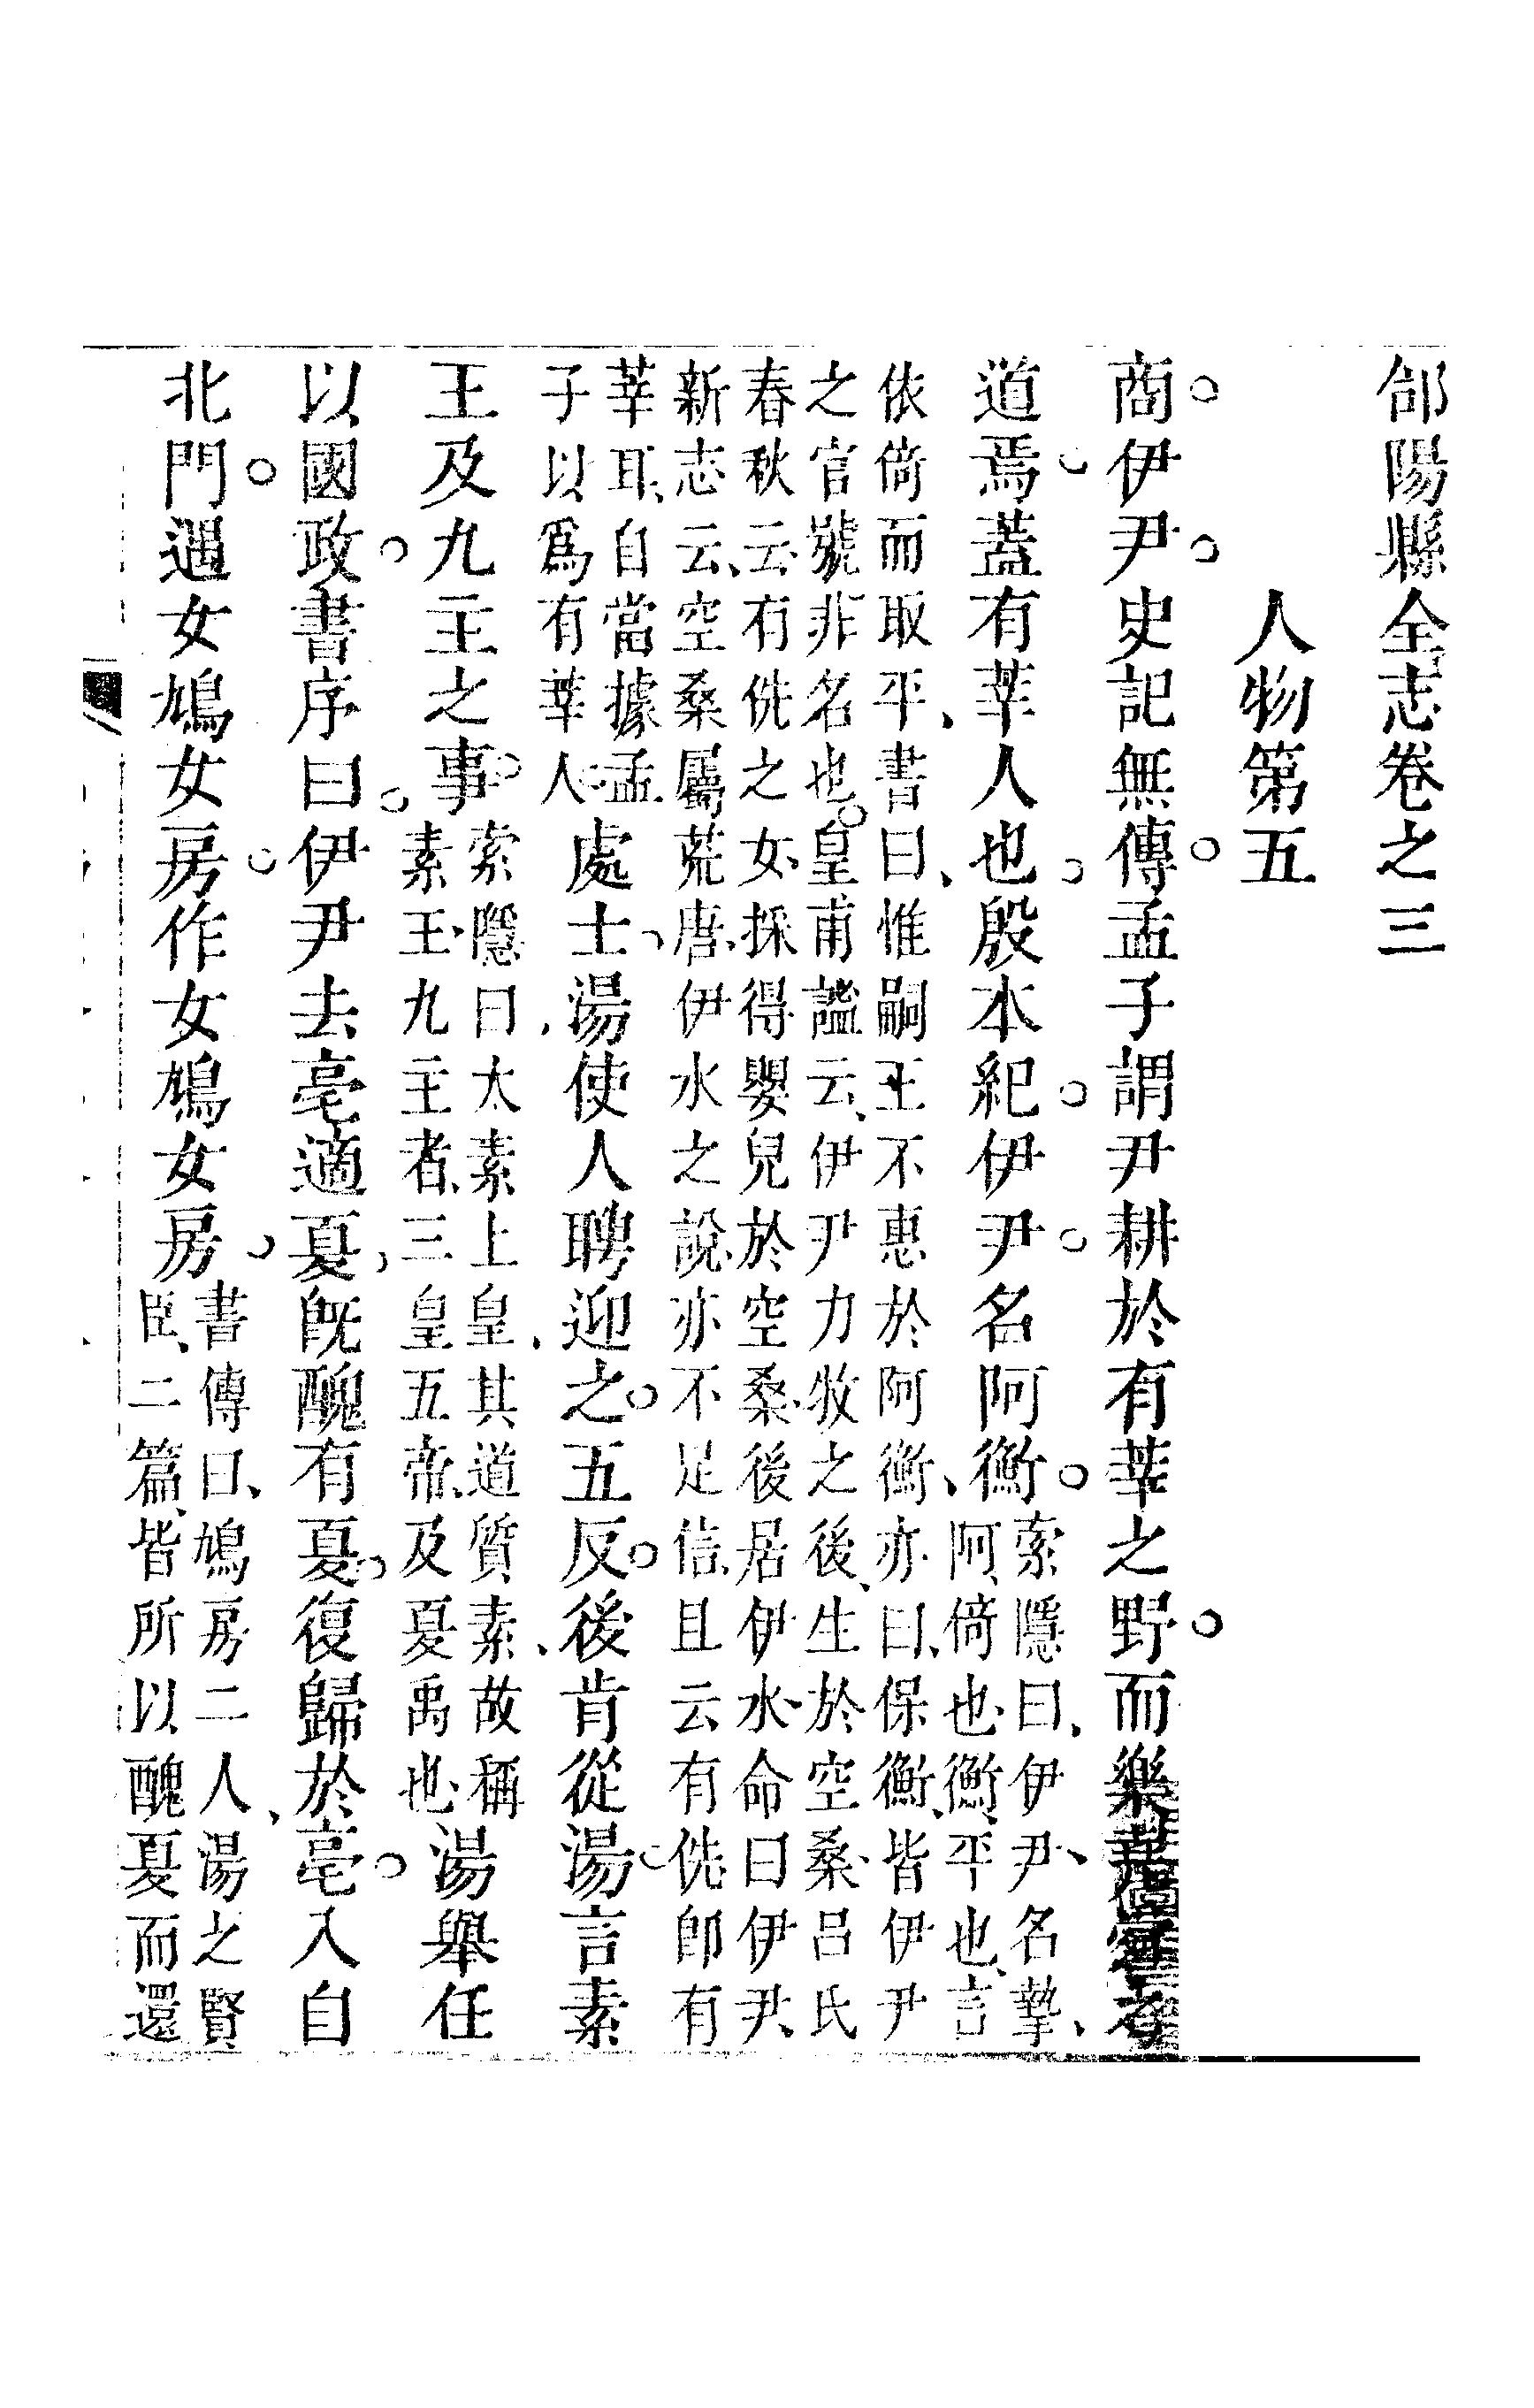 郃陽縣全志卷之三
人物第五
商伊尹史記無傳孟子謂尹耕於有莘之野而樂堯舜之
道焉蓋有莘人也殷本紀伊尹名阿衡索隱曰伊尹名摯
阿倚也衡平也言
依倚而取平書曰惟嗣王不惠於阿衡亦曰保衡皆伊尹
之官號非名也皇甫謐云伊尹力牧之後生於空桑呂氏
春秋云有侁之女採得嬰兒於空桑後居伊水命曰伊尹
新志云空桑屬荒唐伊水之說亦不足信且云有侁卽有
莘耳自當據孟
子以爲有莘人處士湯使人聘迎之五反後肯從湯言素
王及九主之事索隱曰太素上皇其道質素故稱
素王九主者三皇五帝及夏禹也湯舉任
以國政書序曰伊尹去亳適夏旣醜有夏復歸於亳入自
北門遇女鳩女房作女鳩女房書傳曰鳩房二人湯之賢
臣二篇皆所以醜夏而還